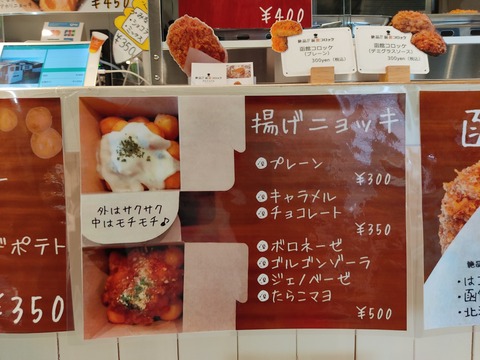 ¥450
¥350
¥400
函館コロッケ
(プレーン)
300yen(税込)
函館コロッケ
(デミグラスソース)
300yen(税込)
揚げニョッキ
プレーン
¥300
キャラメル
チョコレート
¥350
ボロネーゼ
ゴルゴンゾーラ
ジェノベーゼ
たらこマヨ
¥500
外はサクサク
中はモチモチ♪
ドポテト
¥350
函
・は
・函
・北